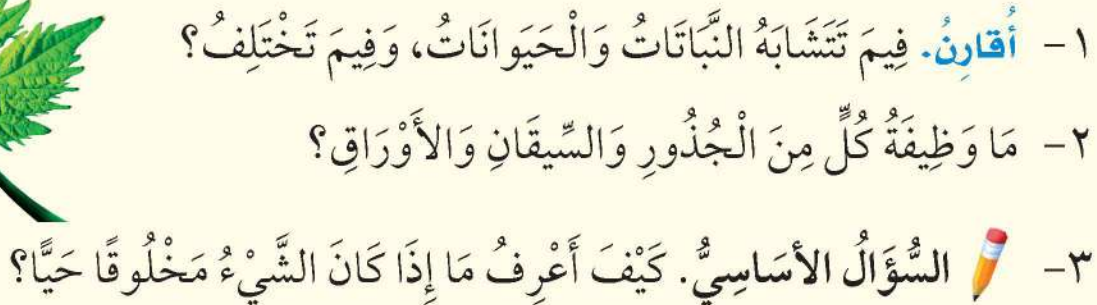 ١- أُقارِنُ. فِيمَ تَتَشَابَهُ النَّبَاتَاتُ وَالْحَيَوانَاتُ، وَفِيمَ تَخْتَلِفُ؟
٢- مَا وَظِيفَةُ كُلٍّ مِنَ الْجُذُورِ وَالسِّيقَانِ وَالأَوْرَاقِ؟
٣- السُّؤَالُ الأسَاسِيُّ. كَيْفَ أَعْرِفُ مَا إِذَا كَانَ الشَّيْءُ مَخْلُوقًا حَيًّا؟